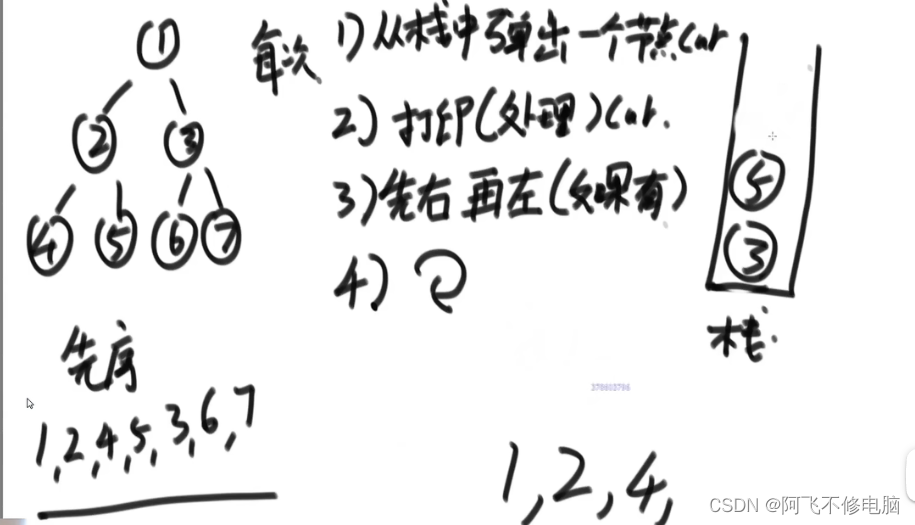 ①
每次 1) 从栈中弹出一个节点cur
② ③
2) 打印(处理)cur.
3) 先右再左(如果有)
④ ⑤ ⑥ ⑦
4)
⑤
③
栈.
先序
1,2,4,5,3,6,7
378603796
1,2,4,
CSDN @阿飞不修电脑